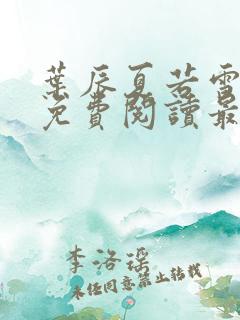 葉辰夏若雪
免費閱讀最
李洛瑤
未經同意禁止转载